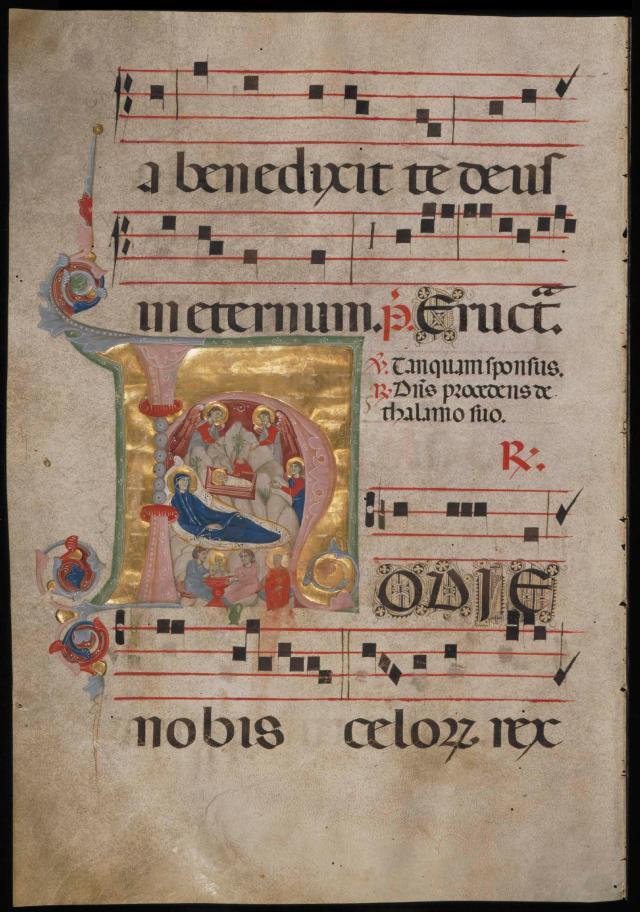 a benedixit te deus
in eternum. p̄. Eruct̄.
V. Tanquam sponsus.
R. Dn̄s procedens de
thalamo suo.
R.
HODIE
nobis celoꝝ rex